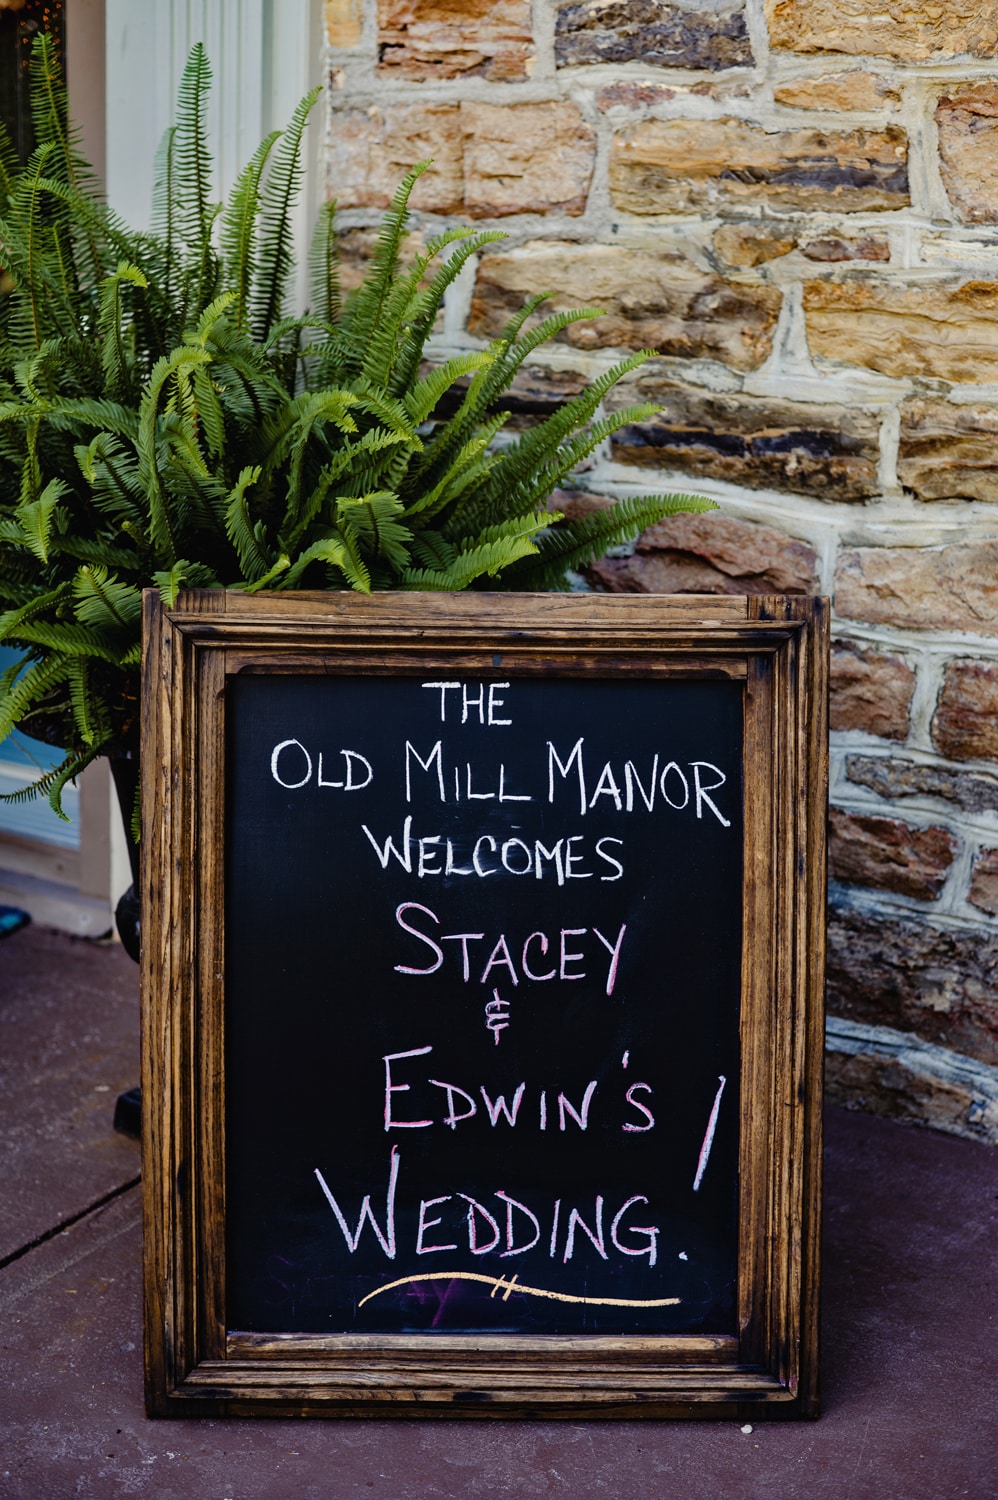 THE
OLD MILL MANOR
WELCOMES
STACEY
&
EDWIN'S
WEDDING!